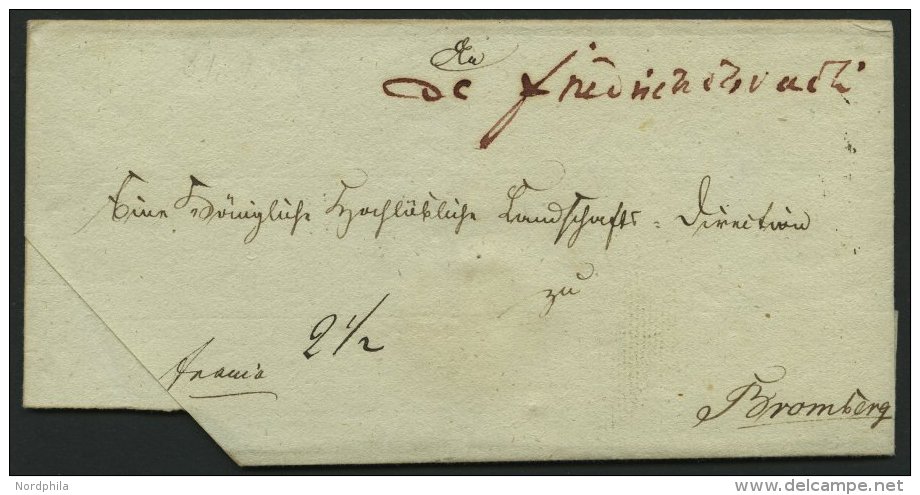 An
de friedrichsbruch
Eine Königliche Hochlöbliche Landschafts-Direction
zu
franco 2 1/2
Bromberg
Nordphila
www.delcampe.net